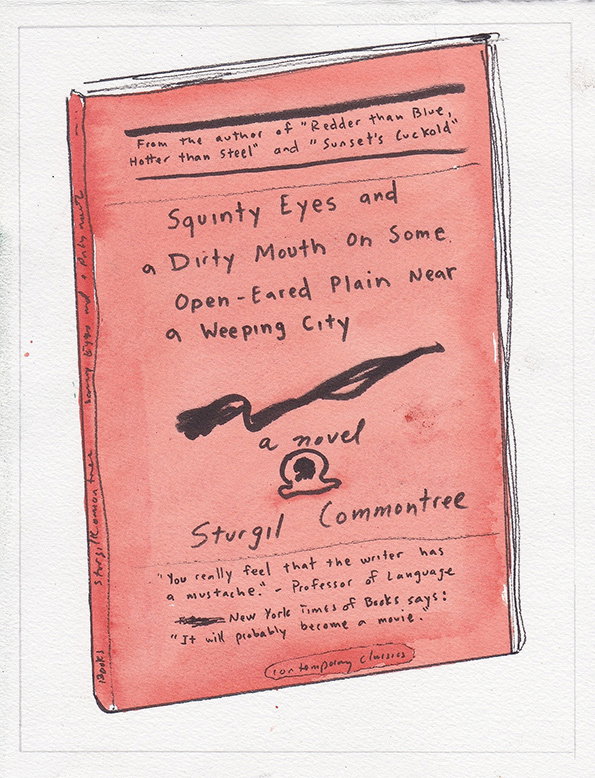 From the author of "Redder than Blue,
Hotter than Steel" and "Sunset's Cuckold"
Squinty Eyes and
a Dirty Mouth On Some
Open-Eared Plain Near
a Weeping City
a novel
Sturgil Commontree
"You really feel that the writer has
a mustache." - Professor of Language
New York Times of Books says:
"It will probably become a movie."
contemporary classics
Books